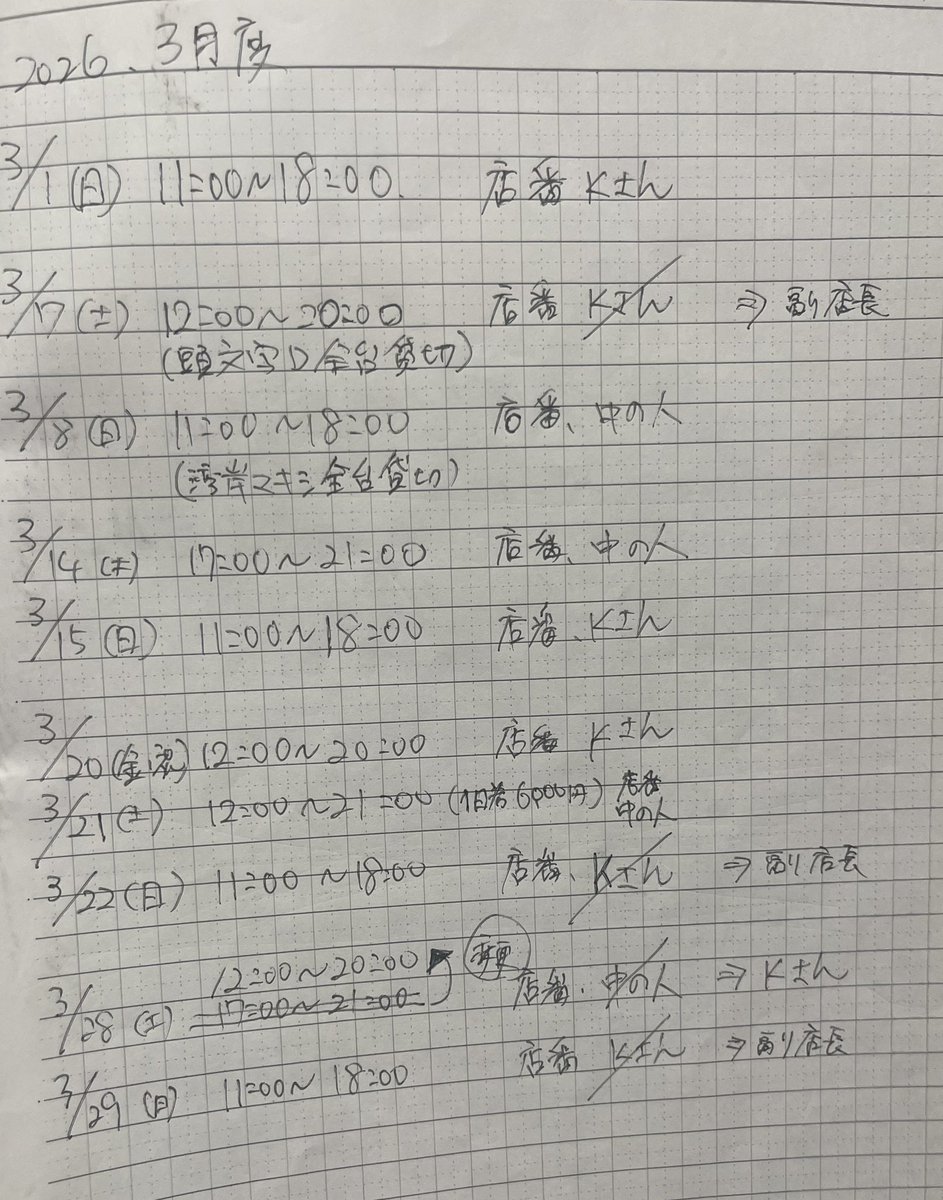 2026. 3月度
3/1(日) 11:00～18:00. 店番 Kさん
3/7(土) 12:00～20:00 店番 Kさん ⇒ 副店長
(頭文字D全台貸切)
3/8(日) 11:00～18:00 店番、中の人
(湾岸マキシ全台貸切)
3/14(土) 17:00～21:00 店番、中の人
3/15(日) 11:00～18:00 店番、Kさん
3/20(金祝) 12:00～20:00 店番 Kさん
3/21(土) 12:00～21:00 (1日券6000円) 店番
中の人
3/22(日) 11:00～18:00 店番、Kさん ⇒ 副店長
12:00～20:00 変更
3/28(土) 17:00～21:00 店番、中の人 ⇒ Kさん
3/29(日) 11:00～18:00 店番 Kさん ⇒ 副店長